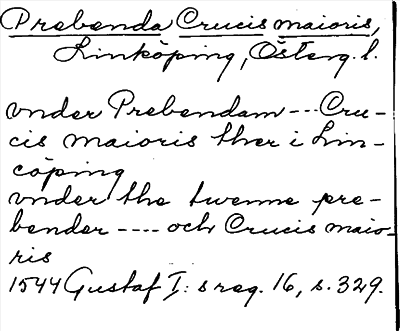 Prebenda Crucis maioris,
Linköping, Österg. l.
vnder Prebendam --- Cru-
cis maioris ther i Lin-
cöping
vnder the twenne pre-
bender ---- och Crucis maio-
ris
1544 Gustaf I:s reg. 16, s. 329.